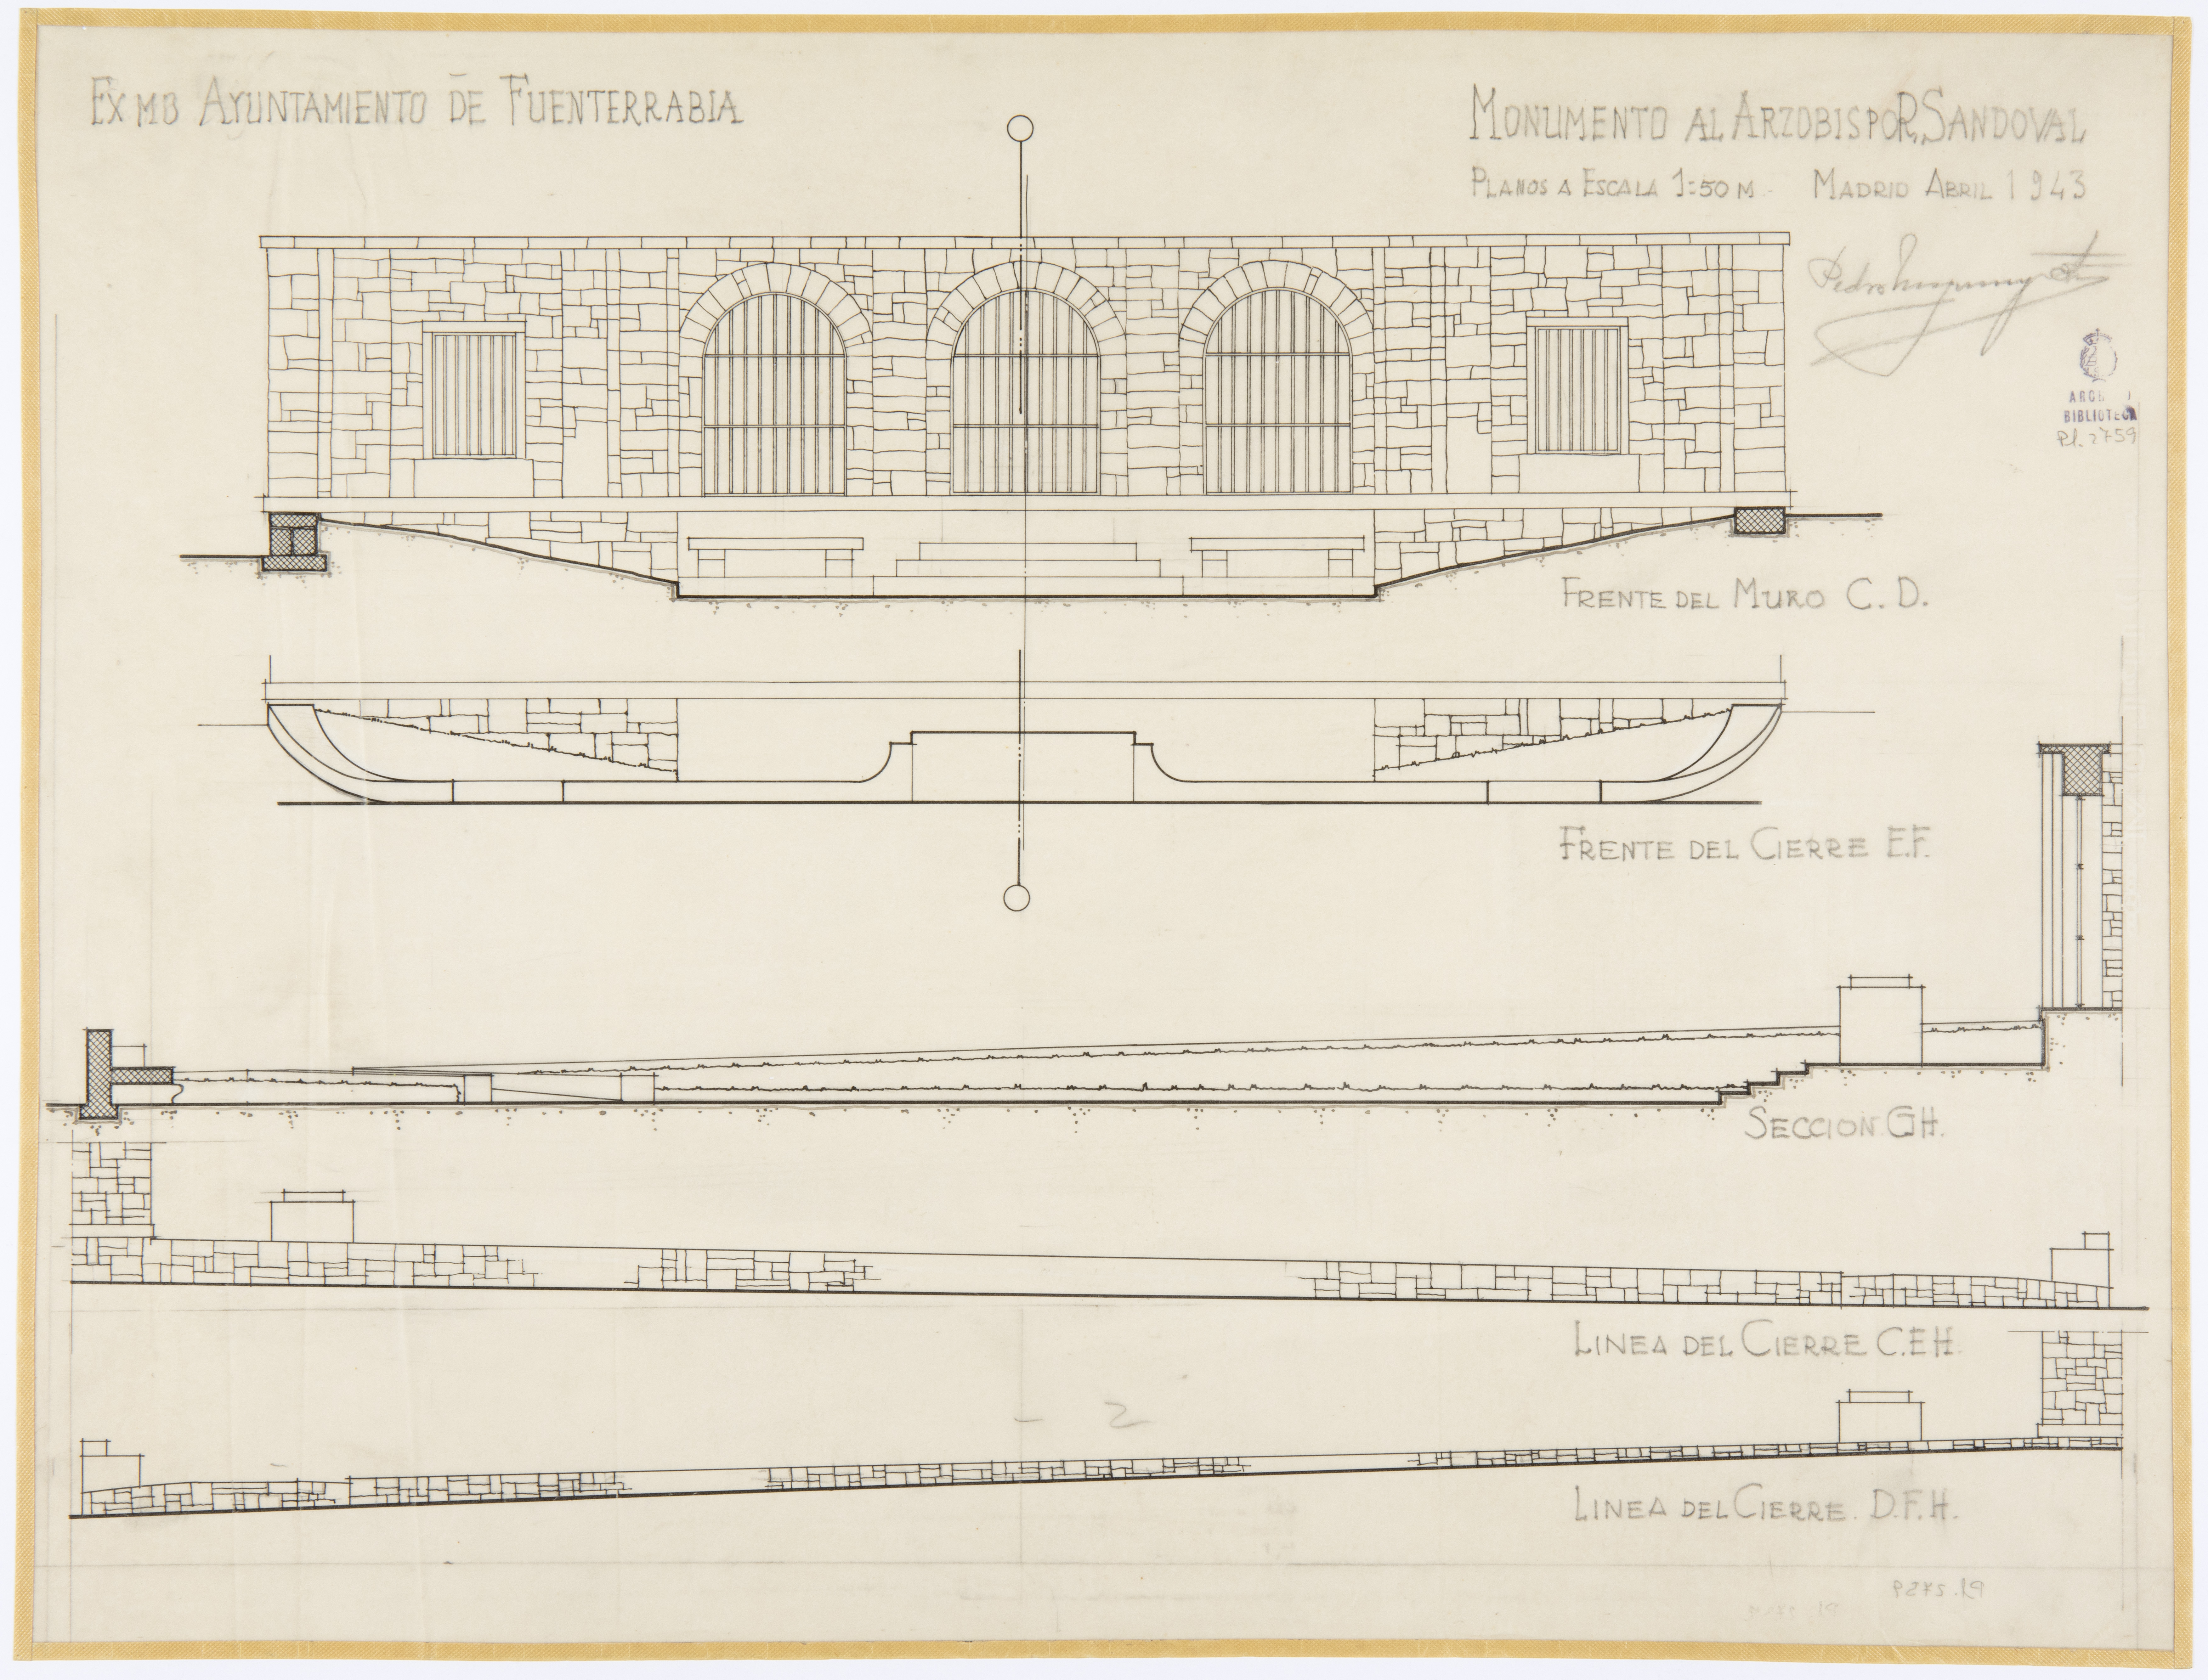 EXMO AYUNTAMIENTO DE FUENTERRABIA
MONUMENTO AL ARZOBISPO R. SANDOVAL
PLANOS A ESCALA 1:50 M. MADRID ABRIL 1943
Pedro
BIBLIOTECA
Pl. 2759
FRENTE DEL MURO C. D.
FRENTE DEL CIERRE E.F.
SECCION G H.
LINEA DEL CIERRE C.E H.
- 2
LINEA DEL CIERRE. D.F.H.
Pl. 2759